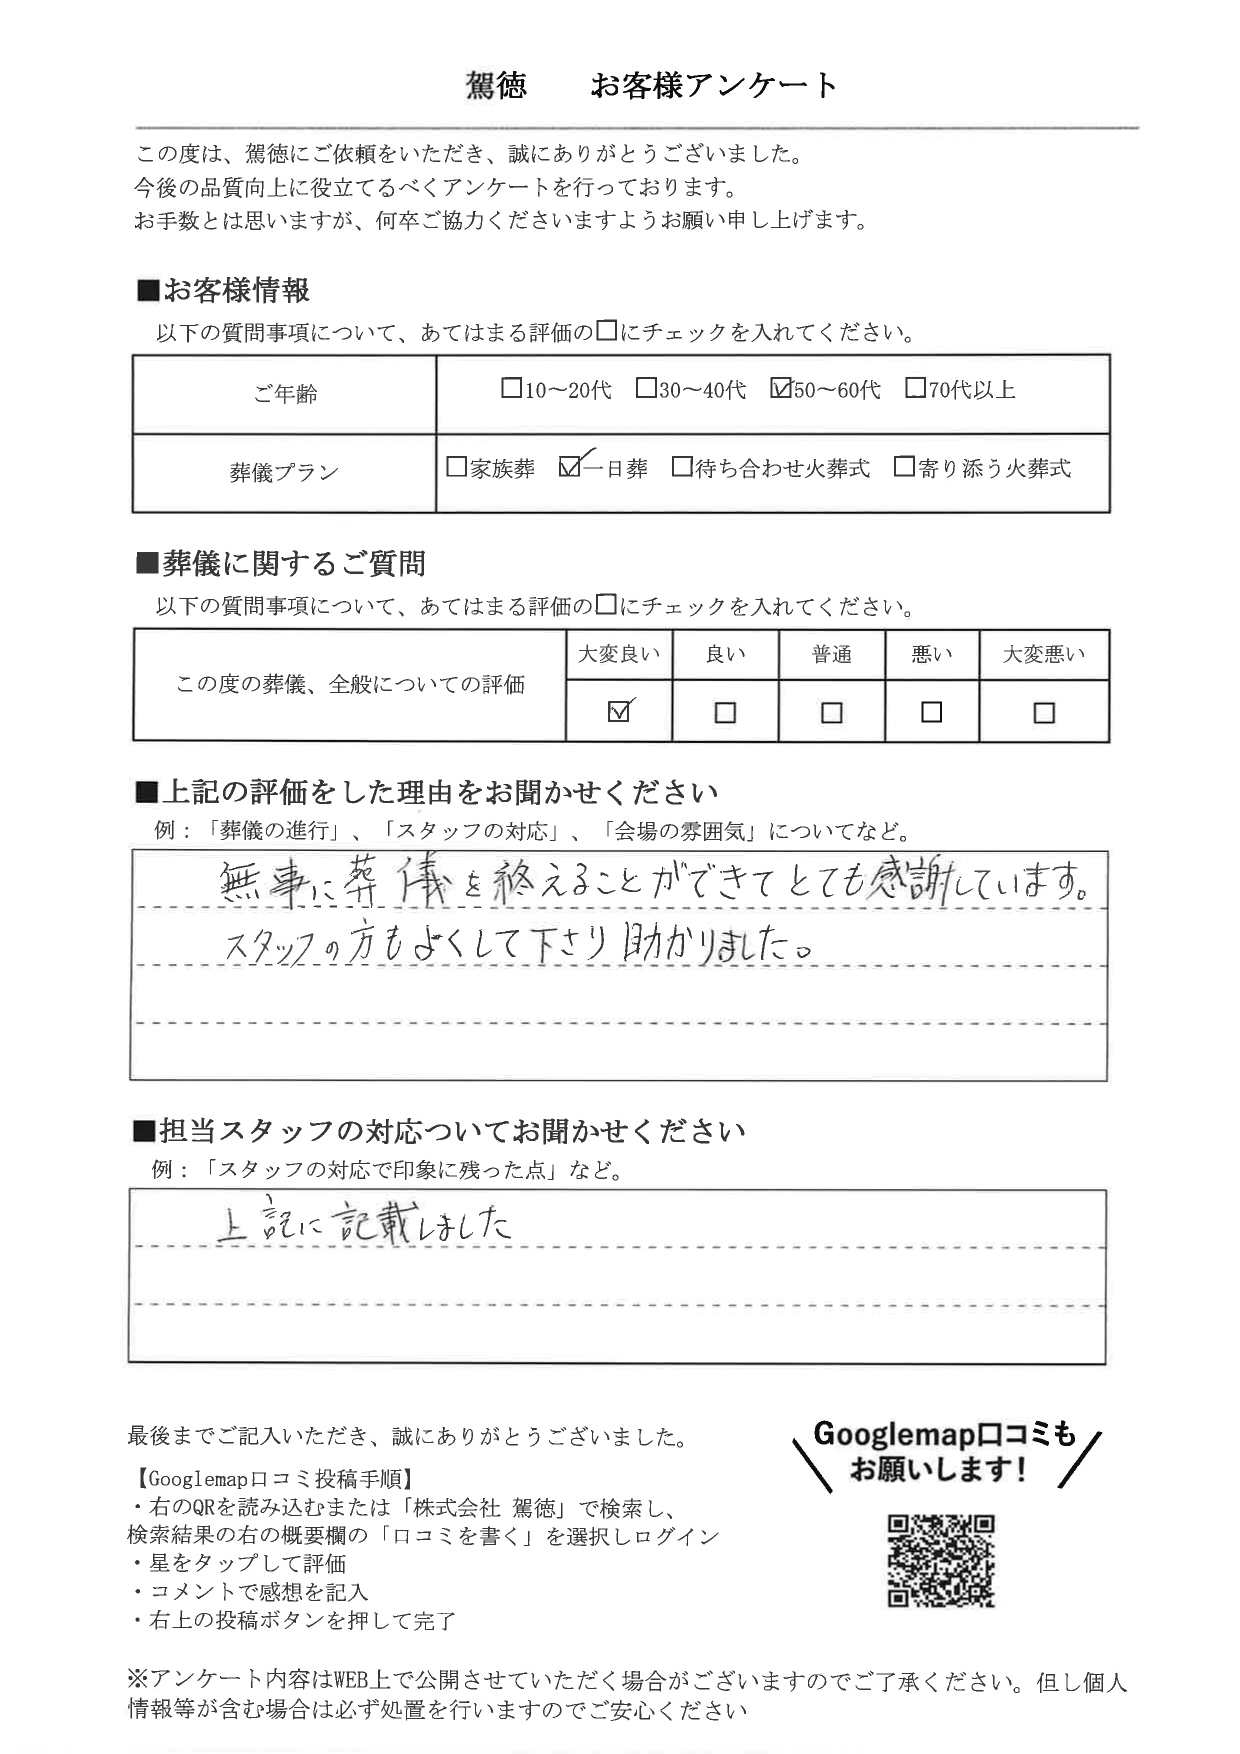 駕徳　　お客様アンケート
この度は、駕徳にご依頼をいただき、誠にありがとうございました。
今後の品質向上に役立てるべくアンケートを行っております。
お手数とは思いますが、何卒ご協力くださいますようお願い申し上げます。
■お客様情報
以下の質問事項について、あてはまる評価の□にチェックを入れてください。
ご年齢 □10～20代 □30～40代 ☑50～60代 □70代以上
葬儀プラン □家族葬 ☑一日葬 □待ち合わせ火葬式 □寄り添う火葬式
■葬儀に関するご質問
以下の質問事項について、あてはまる評価の□にチェックを入れてください。
大変良い 良い 普通 悪い 大変悪い
この度の葬儀、全般についての評価
☑ □ □ □ □
■上記の評価をした理由をお聞かせください
例：「葬儀の進行」、「スタッフの対応」、「会場の雰囲気」についてなど。
無事に葬儀を終えることができてとても感謝しています。
スタッフの方もよくして下さり助かりました。
■担当スタッフの対応ついてお聞かせください
例：「スタッフの対応で印象に残った点」など。
上記に記載しました
最後までご記入いただき、誠にありがとうございました。
【Googlemap口コミ投稿手順】
・右のQRを読み込むまたは「株式会社 駕徳」で検索し、
検索結果の右の概要欄の「口コミを書く」を選択しログイン
・星をタップして評価
・コメントで感想を記入
・右上の投稿ボタンを押して完了
Googlemap口コミも
お願いします！
※アンケート内容はWEB上で公開させていただく場合がございますのでご了承ください。但し個人
情報等が含む場合は必ず処置を行いますのでご安心ください